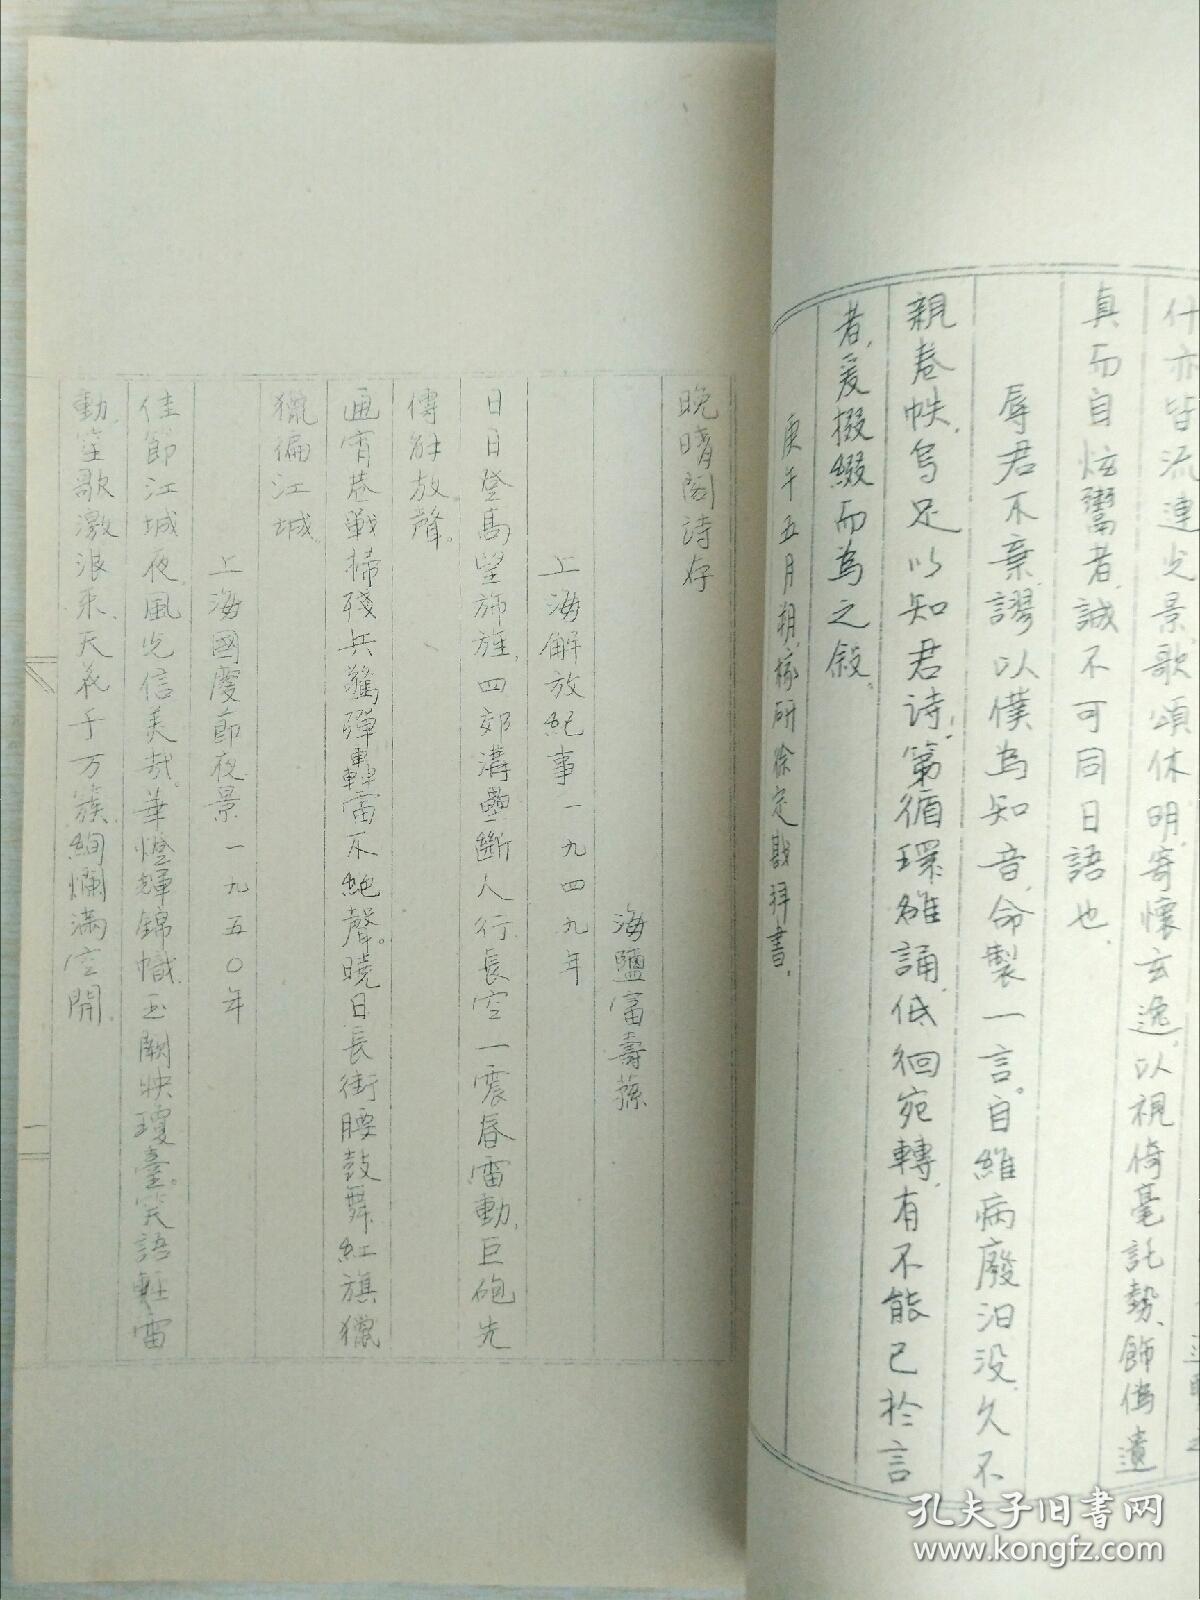 什亦皆流連光景歌頌休明、寄懷玄逸、以視倚毫託勢、飾僞遺
真而自炫鬻者、誠不可同日語也、
辱君不棄、謬以僕為知音、命製一言。自維病廢汩没、久不
親卷帙、烏足以知君詩、第循環雒誦、低徊宛轉、有不能已於言
者、爰掇綴而為之敘、
庚午五月朔、椽研徐定戡拜書、
晚晴閣詩存
海鹽富壽蓀
上海解放紀事一九四九年
日日登高望斾旌、四郊溝壘斷人行、長空一震春雷動、巨砲先
傳解放聲。
通宵巷戰掃殘兵、飛彈轟雷不絶聲。曉日長街腰鼓舞、紅旗獵
獵徧江城。
上海國慶節夜景一九五〇年
佳節江城夜、風光信美哉。華燈輝錦幟、玉闕映瓊臺。笑語軽雷
動、笙歌激浪来、天花千万簇、絢爛滿空開、
一
孔夫子旧书网
www.kongfz.com